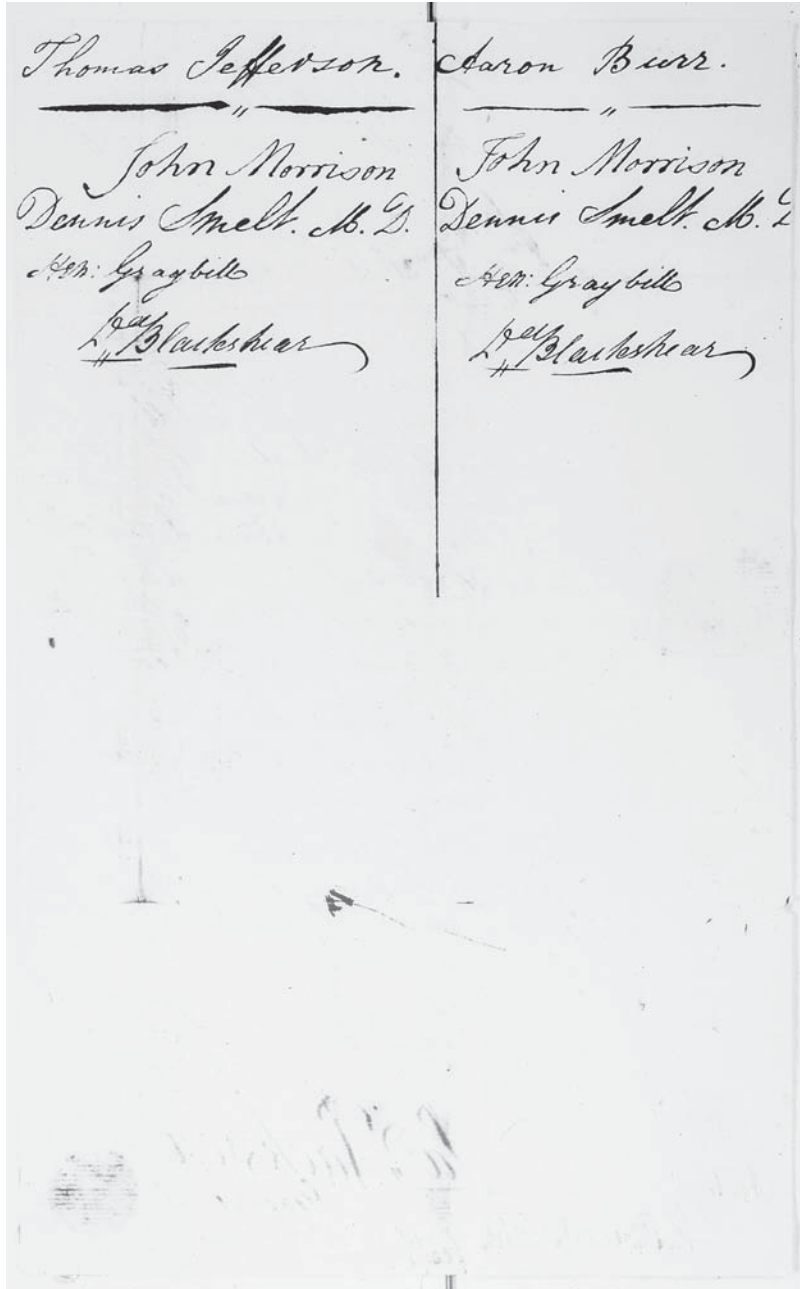 Thomas Jefferson.
John Morrison
Dennis Smelt. M. D.
Hen: Graybill
Dd Blackshear
Aaron Burr.
John Morrison
Dennis Smelt. M.
Hen: Graybill
Dd Blackshear